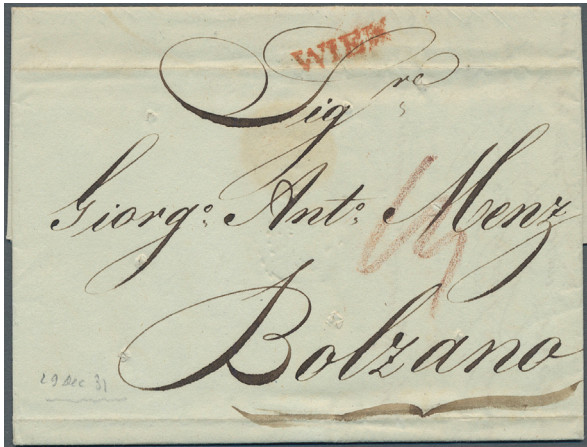 WIEN
Sig.re
Giorg.o Ant.o Menz
Bolzano
29 Dec 31